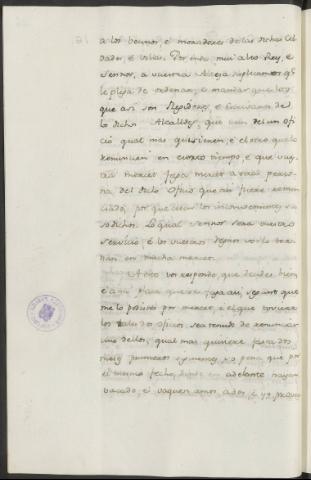 a los vecinos, è moradores de las dichas Cib
dades, è villas. Por ende mui alto Rey, è
Sennor, a vuestra Alteza suplicamos qe
le plega de ordenar, è mandar que los
que asi son Regidores, è Escrivanos de
lo dicho Alcaldes, que usen del un ofi
cio qual mas quisieren, è el otro que lo
renuncien en cierto tiempo, è que vues
tra merced faga merced à otra perso
na del dicho Oficio que asi fuere renun
ciado, por que cesen los inconvenientes su
sodichos. Lo qual sennor será vuestro
servicio, è los vuestros Regnos vos lo ter
nan en mucha merced.
A esto vos respondo, que decides bien
è à mi place que se faga asi segunt que
me lo pedistes por merced, è el que toviere
los tales dos oficios sea tenudo de renunciar
uno dellos, qual mas quisiere fasta dos
meses primeros siguientes, so pena que por
el mismo fecho, dende en adelante hayan
vacado, è vaquen amos ados, è yo provea